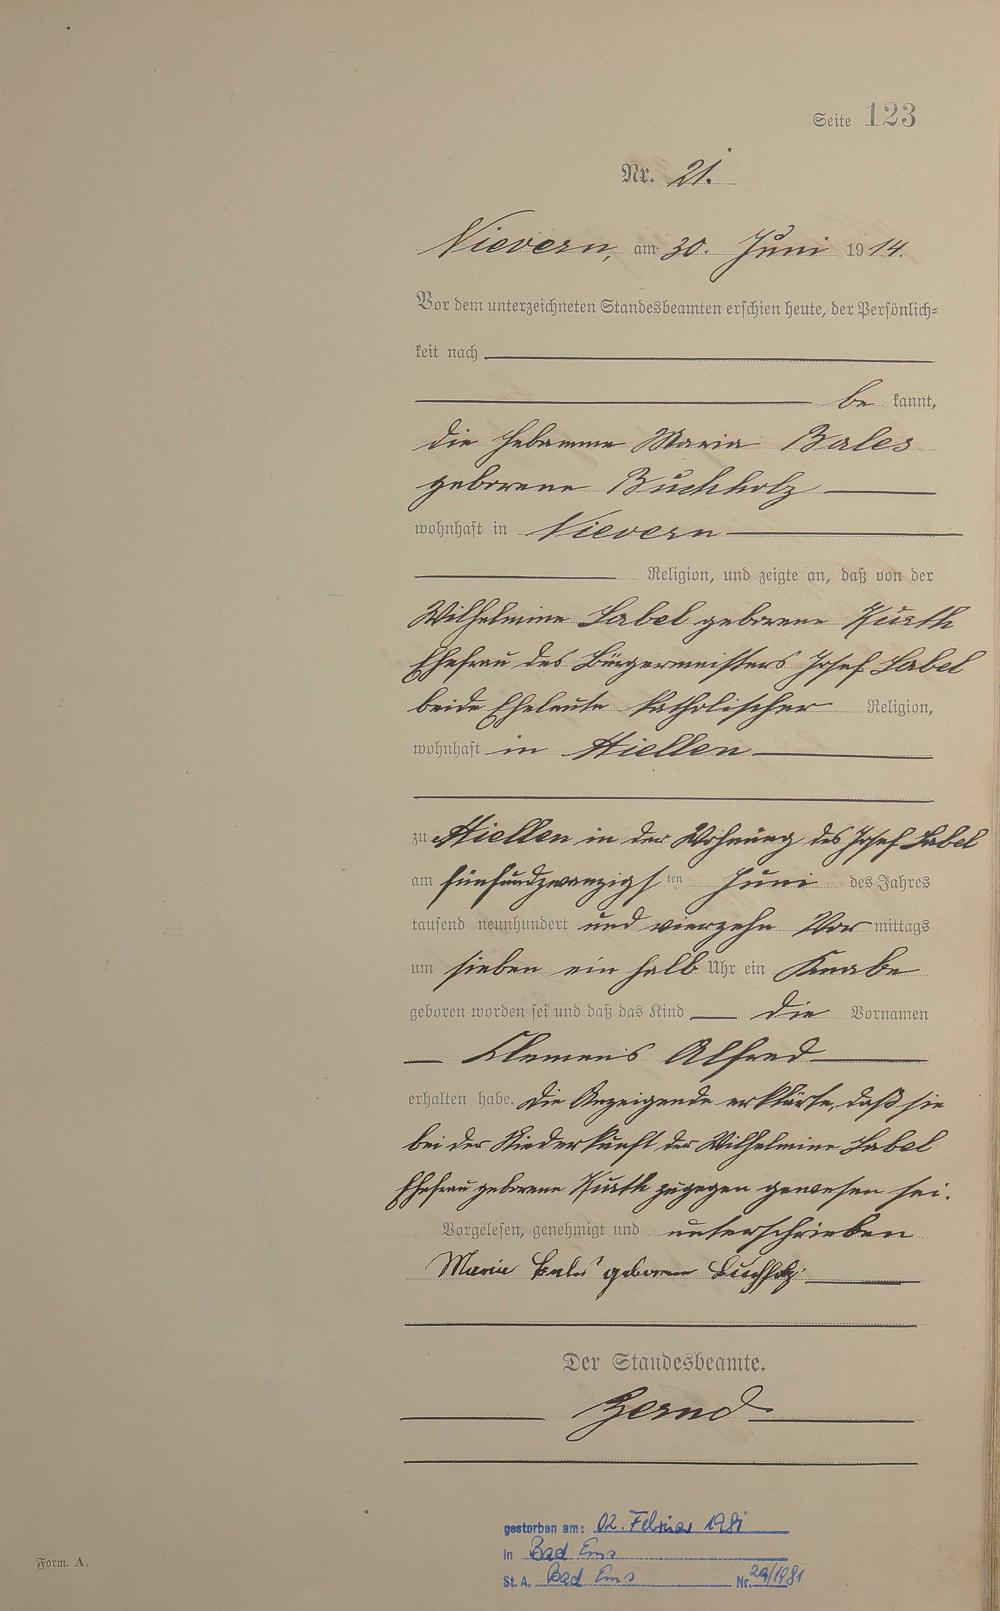 Seite 123
Nr. 21.
Nievern, am 30. Juni 1914.
Vor dem unterzeichneten Standesbeamten erschien heute, der Persönlich-
keit nach
be kannt,
die Hebamme Maria Bales
geborene Buchholz
wohnhaft in Nievern
Religion, und zeigte an, daß von der
Wilhelmine Label geborene Kurth
Ehefrau des Bürgermeisters Josef Label
beide Eheleute katholischer Religion,
wohnhaft in Miellen
zu Miellen in der Wohnung des Josef Label
am fünfundzwanzigsten Juni des Jahres
tausend neunhundert und vierzehn Vor mittags
um sieben ein halb Uhr ein Knabe
geboren worden sei und daß das Kind die Vornamen
Klemens Alfred
erhalten habe. Die Anzeigende erklärte, daß sie
bei der Niederkunft der Wilhelmine Label
Ehefrau geborene Kurth zugegen gewesen sei.
Vorgelesen, genehmigt und unterschrieben
Maria Bales geborene Buchholz
Der Standesbeamte.
gestorben am: 02. Februar 1981
in Bad Ems
St. A. Bad Ems Nr. 29/1981
Form. A.